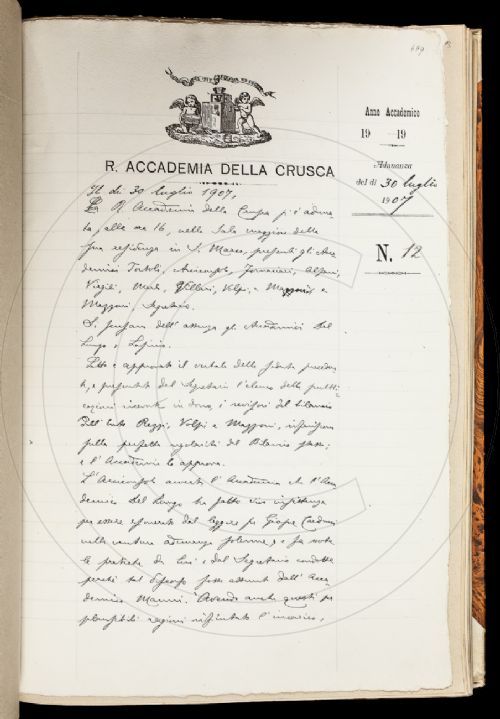 669
R. ACCADEMIA DELLA CRUSCA
Anno Accademico
19 19
Adunanza
del dì 30 luglio
1907
N. 12
Il dì 30 luglio 1907,
La R. Accademia della Crusca s'è aduna-
ta, alle ore 16, nella Sala maggiore della
sua residenza in S. Marco, presenti gli Acca-
demici Tortoli, Arcangeli, Fornaciari, Alfani,
Vigili, Villari, Volpi, e
Mazzoni, Segretario.
Si scusano dell'assenza gli Accademici Del
Lungo e
Letto e approvato il verbale della seduta preceden-
te, e presentato dal Segretario l'elenco delle pubbli-
cazioni ricevute in dono, i revisori del bilancio
dell'anno Volpi e Mazzoni, riferiscono
sulla perfetta regolarità del Bilancio stesso;
e l'Accademia lo approva.
L' avverte l'Accademia che l'Acca-
demico Del Lungo ha fatto viva insistenza
per essere esonerato dal leggere su Giosue Carducci
nella ventura adunanza solenne; e fa note
le pratiche da lui e dal Segretario condotte
perché tal discorso fosse assunto dall'Acca-
demico Mazzoni. Avendo anche questi per
plausibili ragioni rifiutato l'incarico,